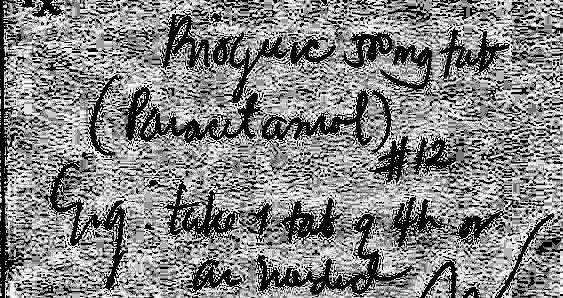 Rx
Biogesic 500mg tab
(Paracetamol)
#12
Sig: take 1 tab q 4h or
as needed